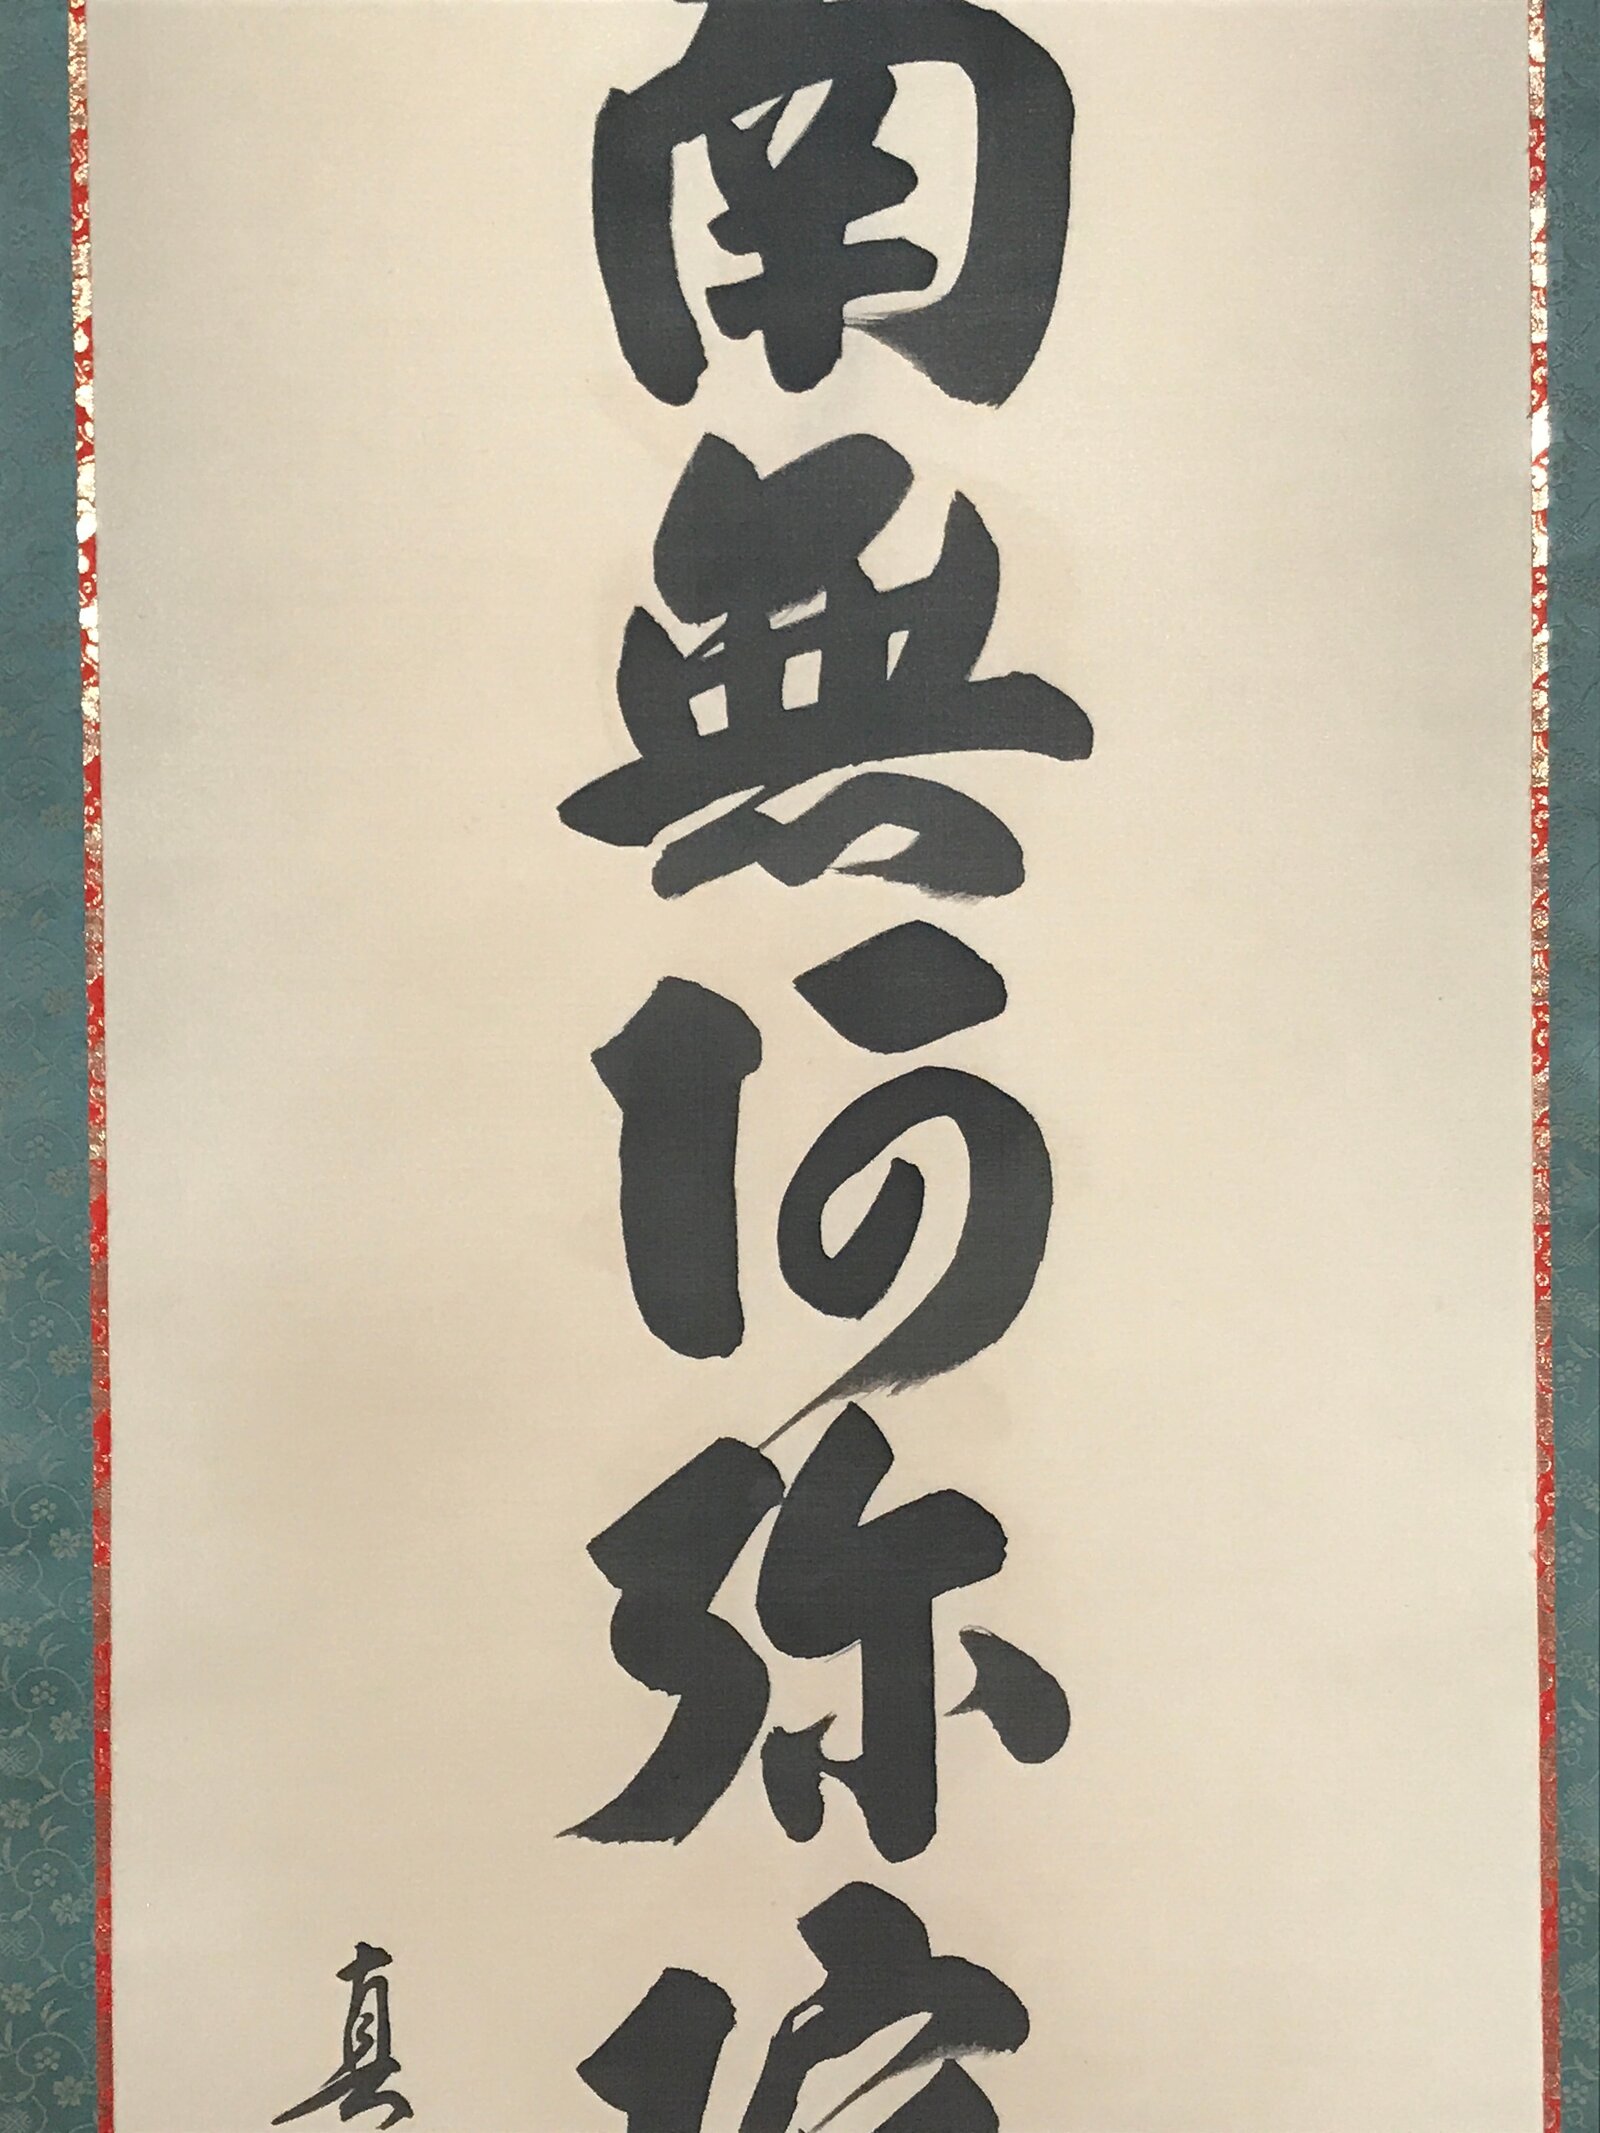 南無阿弥陀
真